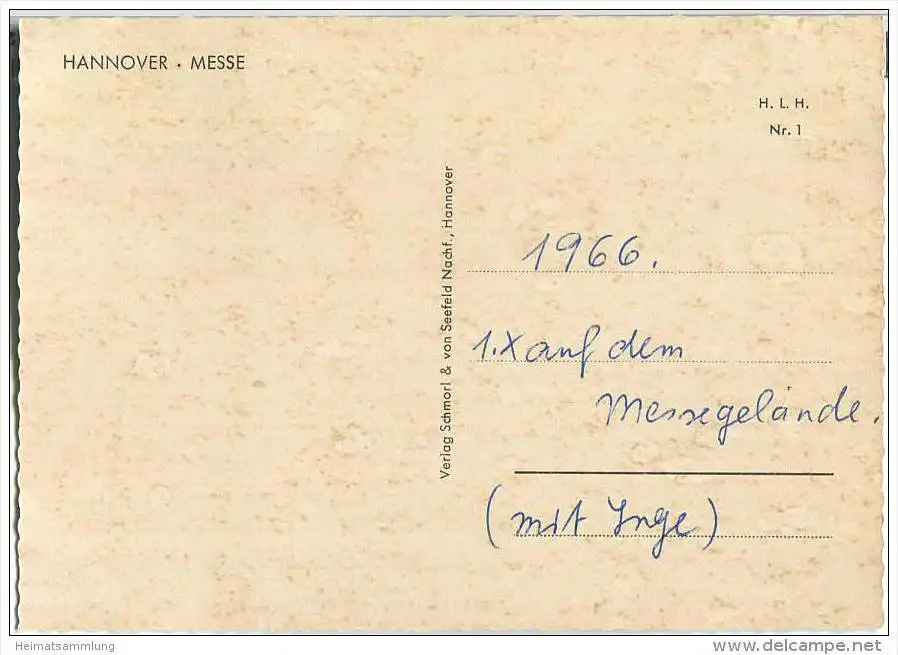 HANNOVER · MESSE
H. L. H.
Nr. 1
Verlag Schmorl & von Seefeld Nachf., Hannover
1966.
1.X auf dem
Messegelände.
(mit Inge)
Heimatsammlung
www.delcampe.net